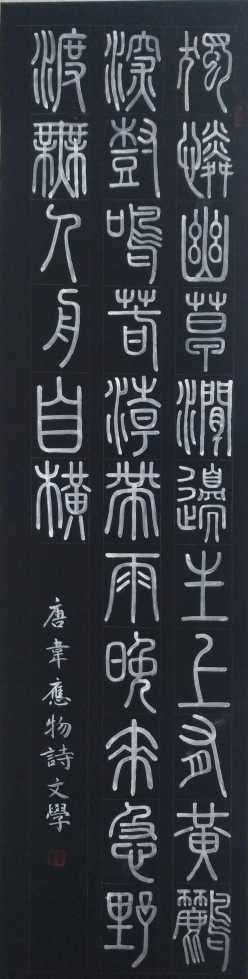 獨憐幽草澗邊生上有黃鸝
深樹鳴春潮帶雨晚來急野
渡無人舟自橫
唐韋應物詩文學